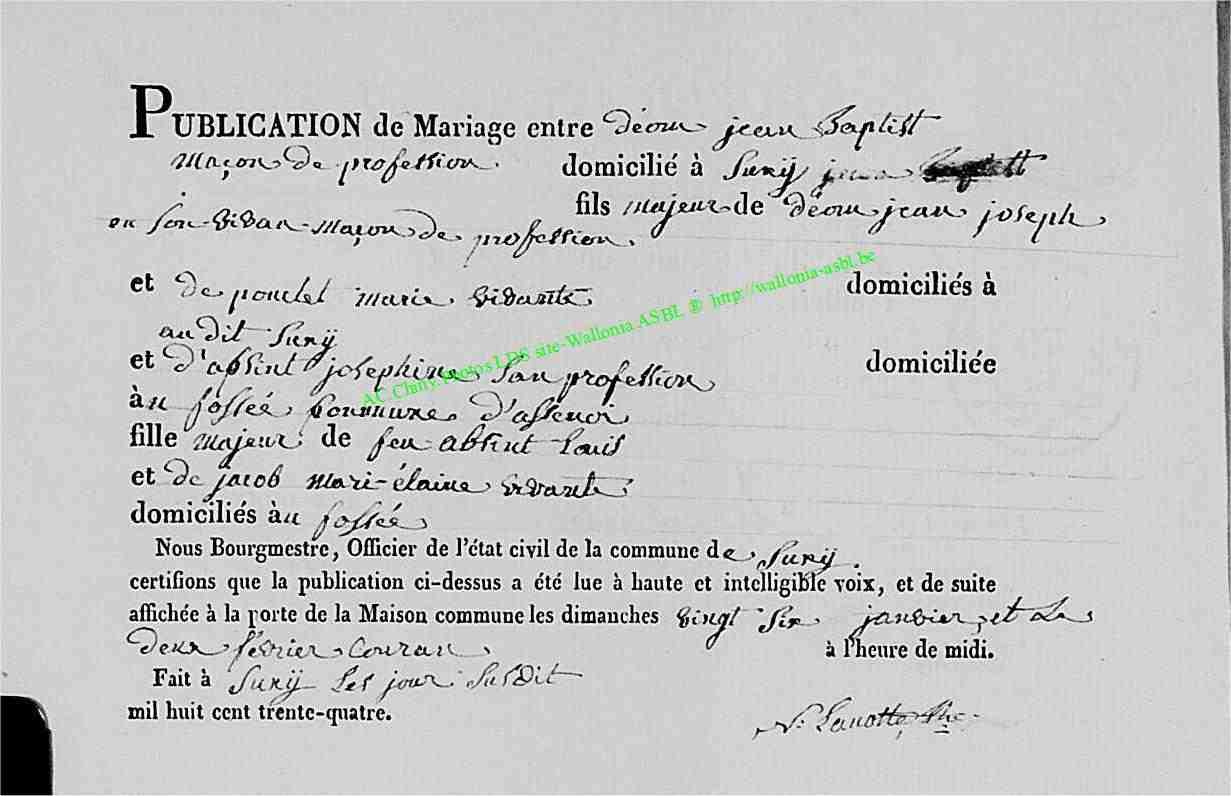 PUBLICATION de Mariage entre déom jean Baptist
maçon de profession domicilié à Suxÿ jean
fils majeur de déom jean joseph
en son vivan maçon de profession
et de ponclet marie vivante domiciliés à
au dit Suxÿ
et d'absint josephine San profession domiciliée
àu fossée Commune d'assenoi
fille majeur de feu absint Louis
et de jacob mari-élaine vivante
domiciliés àu fossée
Nous Bourgmestre, Officier de l'état civil de la commune de Suxÿ.
certifions que la publication ci-dessus a été lue à haute et intelligible voix, et de suite
affichée à la porte de la Maison commune les dimanches vingt Six janvier, et Le
deux février Couran à l'heure de midi.
Fait à Suxÿ Les jour Susdit
mil huit cent trente-quatre.
N. Lanotte
AC Chiny Photos LDS site-Wallonia ASBL ® http://wallonia-asbl.be